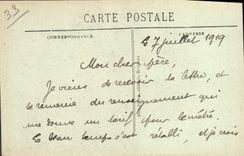 33
CARTE POSTALE
CORRESPONDANCE
ADRESSE
le 7 juillet 1919
Mon cher père,
Je viens de recevoir ta lettre, et
te remercie du renseignement qui
me donne un tarif pour
le beau temps s'est rétabli, et je crois